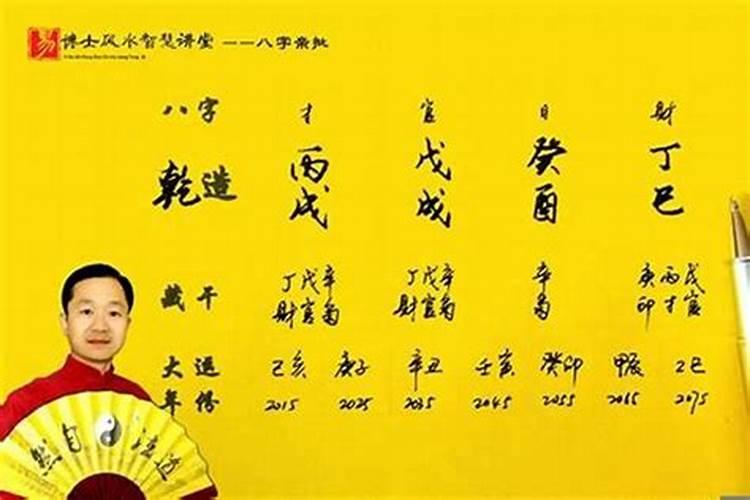 易 博士风水智慧讲堂 ——八字亲批
八字 才 官 日 财
乾造 丙戌 戊戌 癸酉 丁巳
藏干 丁戊辛 丁戊辛 辛 庚丙戊
财官 财官 印才官
大运 己亥 庚子 辛丑 壬寅 癸卯 甲辰 乙巳
年份 2015 2025 2035 2045 2055 2065 2075
然自法道